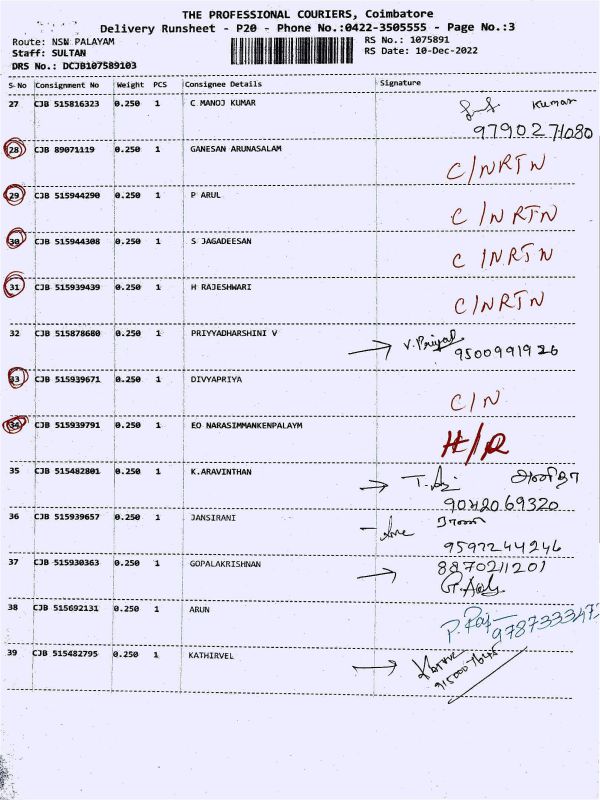 THE PROFESSIONAL COURIERS, Coimbatore
Delivery Runsheet - P20 - Phone No.:0422-3505555 - Page No.:3
Route: NSN PALAYAM
RS No.: 1075891
Staff: SULTAN
RS Date: 10-Dec-2022
DRS No.: DCJB107589103
S-No Consignment No Weight PCS Consignee Details Signature
27 CJB 515816323 0.250 1 C MANOJ KUMAR Kumar
9790271080
28 CJB 89071119 0.250 1 GANESAN ARUNASALAM
C/NRTN
29 CJB 515944290 0.250 1 P ARUL
C/NRTN
30 CJB 515944308 0.250 1 S JAGADEESAN
C/NRTN
31 CJB 515939439 0.250 1 H RAJESHWARI
C/NRTN
32 CJB 515878680 0.250 1 PRIYYADHARSHINI V
9500991926
33 CJB 515939671 0.250 1 DIVYAPRIYA
C/N
34 CJB 515939791 0.250 1 EO NARASIMMANKENPALAYM
35 CJB 515482801 0.250 1 K.ARAVINTHAN
9042069320
36 CJB 515939657 0.250 1 JANSIRANI
9597244246
37 CJB 515930363 0.250 1 GOPALAKRISHNAN
8870211201
38 CJB 515692131 0.250 1 ARUN
39 CJB 515482795 0.250 1 KATHIRVEL